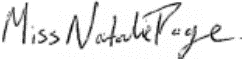 Miss Natalie Page.